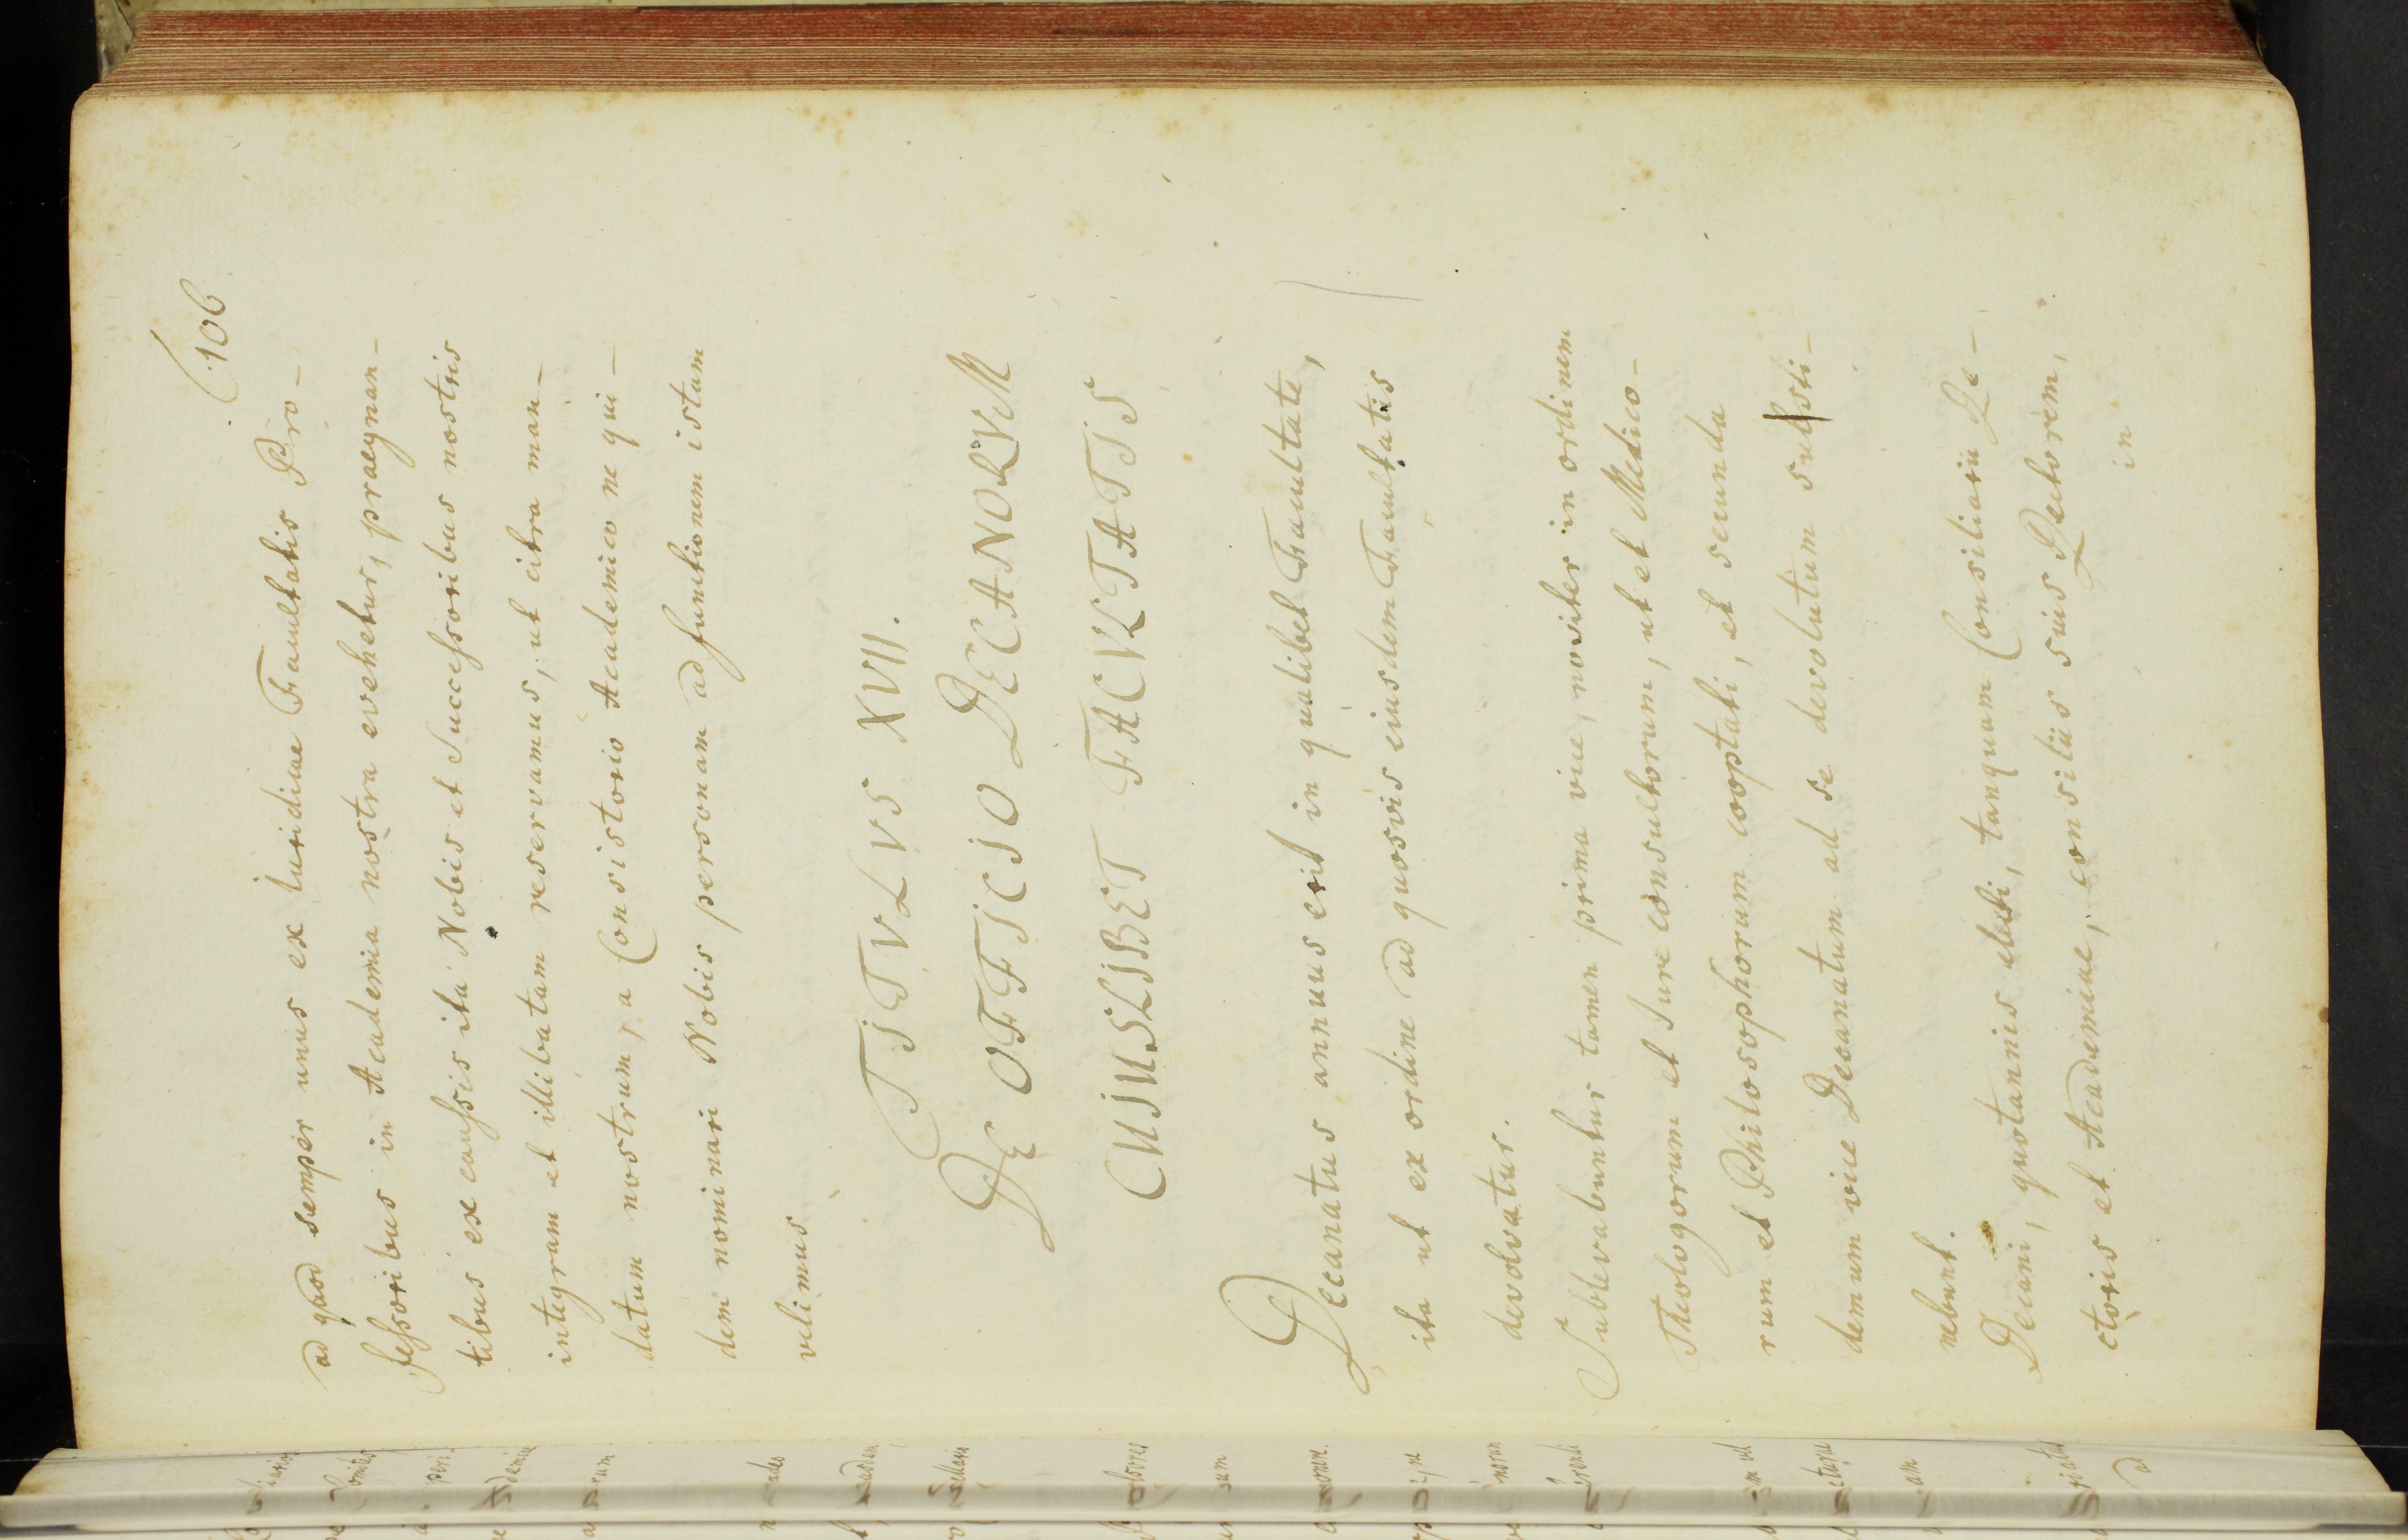 106
ad quod semper unus ex Iuridicae Facultatis Pro-
fessoribus in Academia nostra evehetur, praegnan-
tibus ex caussis ita Nobis et Successoribus nostris
integram et illibatam reservamus, ut citra man-
datum nostrum, a Consistorio Academico ne qui-
dem nominari Nobis personam ad functionem istam
velimus
TITVLVS XVII.
DE OFFICIO DECANORVM
CUIUSLIBET FACVLTATIS
Decanatus annuus erit in qualibet Facultate,
ita ut ex ordine ad quosvis eiusdem Facultatis
devolvatur.
Sublevabuntur tamen prima vice, noviter in ordinem
Theologorum et Iure consultorum, ut et Medico-
rum et Philosophorum cooptati, et secunda
demum vice Decanatum ad se devolutum susti-
nebunt.
Decani, quotannis electi, tanquam Consiliarii Re-
ctoris et Academiae, consiliis suis Rectorem,
in